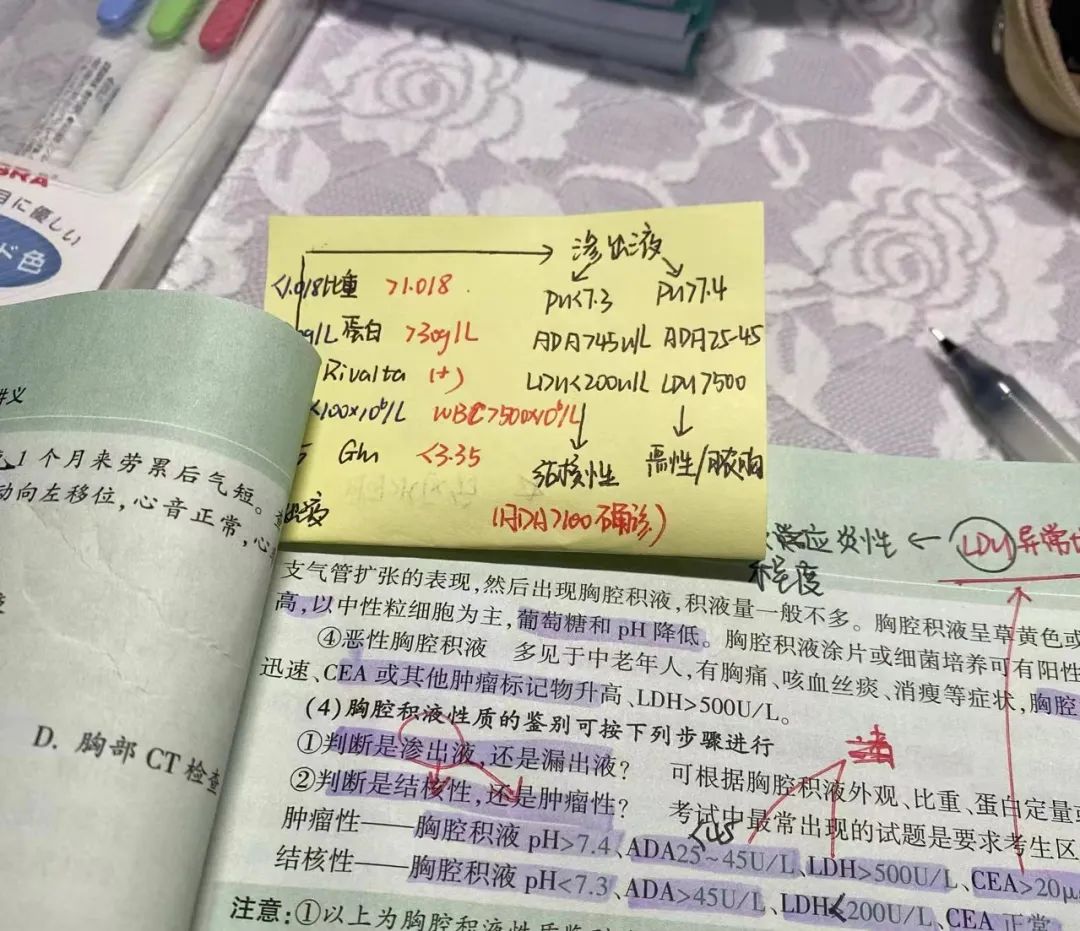 BRA
目に優しい
ド色
渗出液
<1.018 比重 >1.018
PH<7.3 PH>7.4
g/L 蛋白 >30g/L
ADA>45U/L ADA25-45
Rivalta (+)
LDH<200U/L LDH>500
<100×10⁶/L WBC>500×10⁶/L
5 Glu <3.35
结核性 恶性/脓胸
出液
(ADA>100确诊)
反应炎性 ← LDH异常
程度
讲义
1个月来劳累后气短。
动向左移位,心音正常,心
D. 胸部CT检查
支气管扩张的表现,然后出现胸腔积液,积液量一般不多。胸腔积液呈草黄色或
高,以中性粒细胞为主,葡萄糖和pH降低。胸腔积液涂片或细菌培养可有阳性
④恶性胸腔积液 多见于中老年人,有胸痛、咳血丝痰、消瘦等症状,胸腔
迅速、CEA或其他肿瘤标记物升高、LDH>500U/L。
(4)胸腔积液性质的鉴别可按下列步骤进行
①判断是渗出液,还是漏出液? 可根据胸腔积液外观、比重、蛋白定量或
②判断是结核性,还是肿瘤性? 考试中最常出现的试题是要求考生区
<45
肿瘤性——胸腔积液pH>7.4、ADA25~45U/L、LDH>500U/L、CEA>20μ
结核性——胸腔积液pH<7.3、ADA>45U/L、LDH<200U/L、CEA正常
注意:①以上为胸腔积液性质鉴别